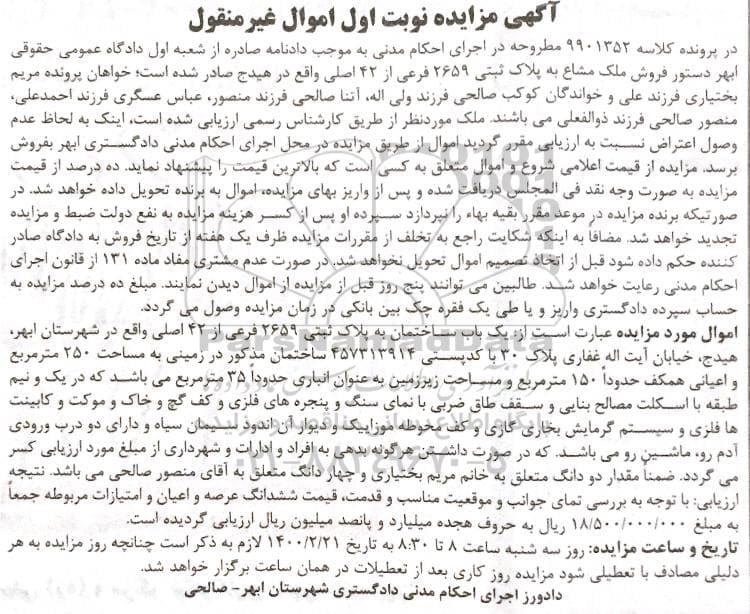 آگهی مزایده نوبت اول اموال غیرمنقول
در پرونده کلاسه ۹۹۰۱۳۵۲ مطروحه در اجرای احکام مدنی به موجب دادنامه صادره از شعبه اول دادگاه عمومی حقوقی
ابهر دستور فروش ملک مشاع به پلاک ثبتی ۲۶۵۹ فرعی از ۴۲ اصلی واقع در هیدج صادر شده است؛ خواهان پرونده مریم
بختیاری فرزند علی و خواندگان کوکب صالحی فرزند ولی اله، آتنا صالحی فرزند منصور، عباس عسگری فرزند احمدعلی،
منصور صالحی فرزند ذوالفعلی می باشند. ملک موردنظر از طریق کارشناس رسمی ارزیابی شده است، اینک به لحاظ عدم
وصول اعتراض نسبت به ارزیابی مقرر گردید اموال از طریق مزایده در محل اجرای احکام مدنی دادگستری ابهر بفروش
برسد. مزایده از قیمت اعلامی شروع و اموال متعلق به کسی است که بالاترین قیمت را پیشنهاد نماید. ده درصد از قیمت
مزایده به صورت وجه نقد فی المجلس دریافت شده و پس از واریز بهای مزایده، اموال به برنده تحویل داده خواهد شد. در
صورتیکه برنده مزایده در موعد مقرر بقیه بهاء را نپردازد سپرده او پس از کسر هزینه مزایده به نفع دولت ضبط و مزایده
تجدید خواهد شد. مضافا به اینکه شکایت راجع به تخلف از مقررات مزایده ظرف یک هفته از تاریخ فروش به دادگاه صادر
کننده حکم داده شود قبل از اتخاذ تصمیم اموال تحویل نخواهد شد. در صورت عدم مشتری مفاد ماده ۱۳۱ از قانون اجرای
احکام مدنی رعایت خواهد شد. طالبین می توانند پنج روز قبل از مزایده از اموال دیدن نمایند. مبلغ ده درصد مزایده به
حساب سپرده دادگستری واریز و یا طی یک فقره چک بین بانکی در زمان مزایده وصول می گردد.
اموال مورد مزایده عبارت است از: یک باب ساختمان به پلاک ثبتی ۲۶۵۹ فرعی از ۴۲ اصلی واقع در شهرستان ابهر،
هیدج، خیابان آیت اله غفاری پلاک ۳۰ با کدپستی ۴۵۷۳۱۳۹۱۴ ساختمان مذکور در زمینی به مساحت ۲۵۰ مترمربع
و اعیانی همکف حدوداً ۱۵۰ مترمربع و مساحت زیرزمین به‌عنوان انباری حدوداً ۳۵ مترمربع می باشد که در یک و نیم
طبقه با اسکلت مصالح بنایی و سقف طاق ضربی با نمای سنگ و پنجره های فلزی و کف گچ و خاک و موکت و کابینت
ها فلزی و سیستم گرمایش بخاری گازی و کف محوطه موزاییک و دیوار آن اندود سیمان سیاه و دارای دو درب ورودی
آدم رو، ماشین رو می باشد. که در صورت داشتن هرگونه بدهی به افراد و ادارات و شهرداری از مبلغ مورد ارزیابی کسر
می گردد. ضمناً مقدار دو دانگ متعلق به خانم مریم بختیاری و چهار دانگ متعلق به آقای منصور صالحی می باشد. نتیجه
ارزیابی: با توجه به بررسی تمای جوانب و موقعیت مناسب و قدمت، قیمت ششدانگ عرصه و اعیان و امتیازات مربوطه جمعاً
به مبلغ ۱۸/۵۰۰/۰۰۰/۰۰۰ ریال به حروف هجده میلیارد و پانصد میلیون ریال ارزیابی گردیده است.
تاریخ و ساعت مزایده: روز سه شنبه ساعت ۸ تا ۸:۳۰ به تاریخ ۱۴۰۰/۲/۲۱ لازم به ذکر است چنانچه روز مزایده به هر
دلیلی مصادف با تعطیلی شود مزایده روز کاری بعد از تعطیلات در همان ساعت برگزار خواهد شد.
دادورز اجرای احکام مدنی دادگستری شهرستان ابهر- صالحی
ParsNamadData